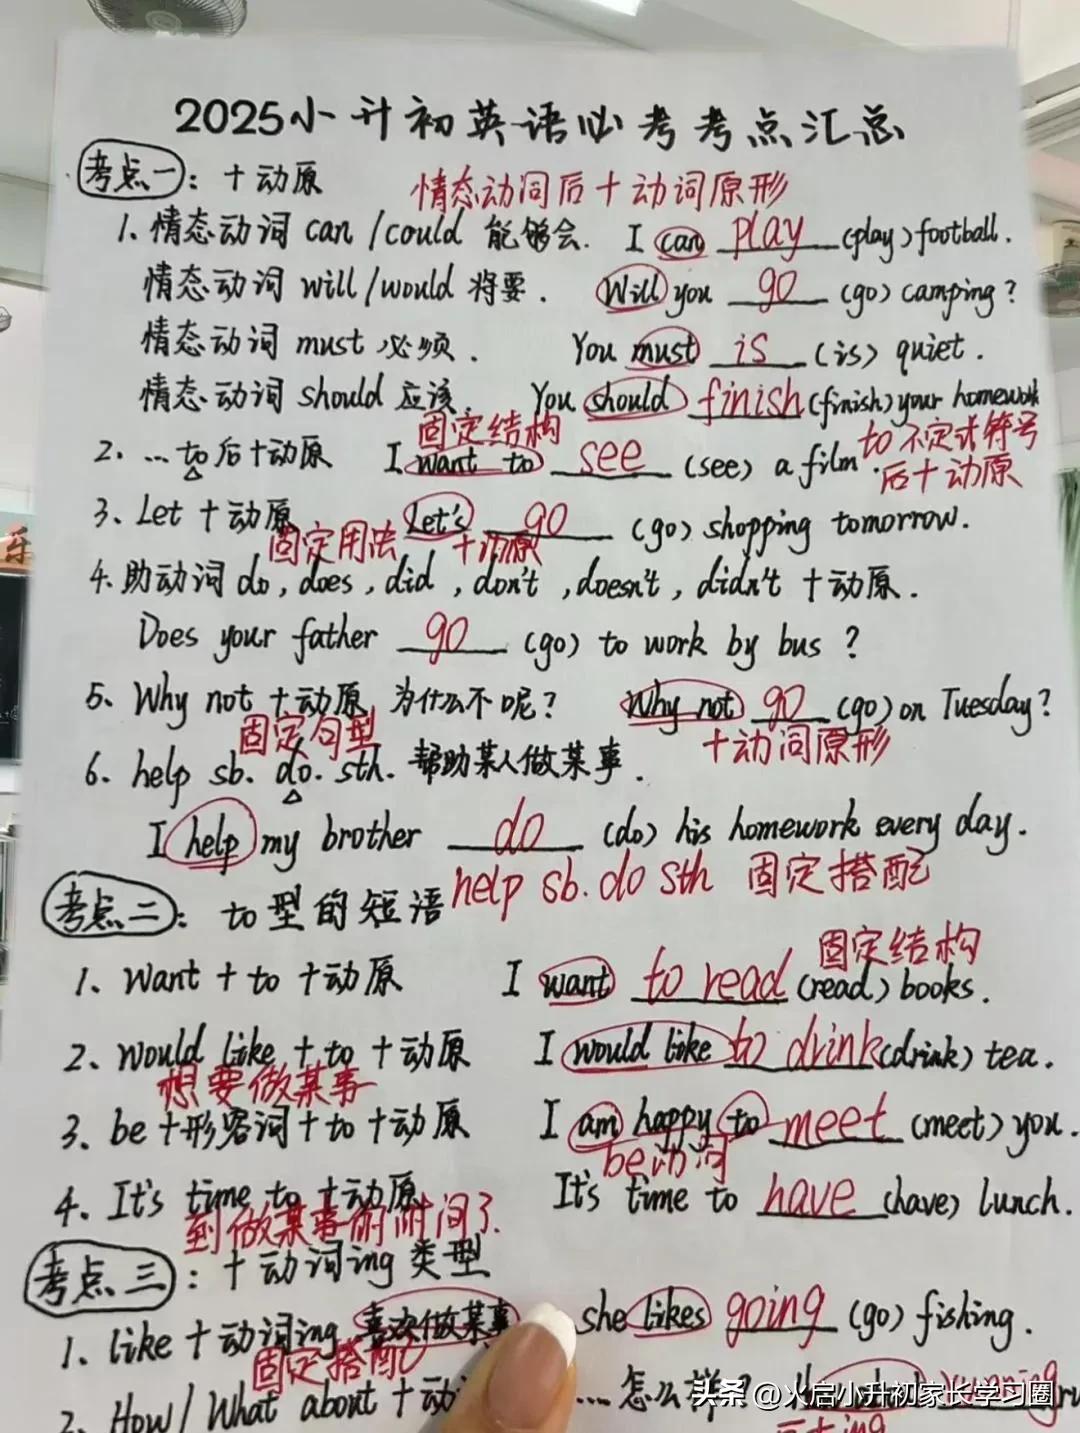 2025小升初英语必考考点汇总
考点一：+动原
情态动词后+动词原形
1、情态动词 can/could 能够会. I can play (play) football.
情态动词 will/would 将要. Will you go (go) camping?
情态动词 must 必须. You must is (is) quiet.
情态动词 should 应该. You should finish (finish) your homework
固定结构
2、...to后+动原 I want to see (see) a film. to不定式符号
后+动原
3、Let+动原 Let's go (go) shopping tomorrow.
固定用法 +动原
4.助动词 do, does, did, don't, doesn't, didn't +动原.
Does your father go (go) to work by bus?
5、Why not +动原 为什么不呢? Why not go (go) on Tuesday?
固定句型 +动词原形
6、help sb. do. sth. 帮助某人做某事.
I help my brother do (do) his homework every day.
help sb. do sth 固定搭配
考点二：to型的短语
固定结构
1、want + to +动原 I want to read (read) books.
2、would like + to +动原 I would like to drink (drink) tea.
想要做某事
3、be+形容词+to+动原 I am happy to meet (meet) you.
be动词
4、It's time to +动原 It's time to have (have) lunch.
到做某事的时间了.
考点三：+动词ing类型
1、like+动词ing 喜欢做某事 she likes going (go) fishing.
固定搭配
2、How/What about +动 ....怎么样?
后+ing
头条 @火启小升初家长学习圈